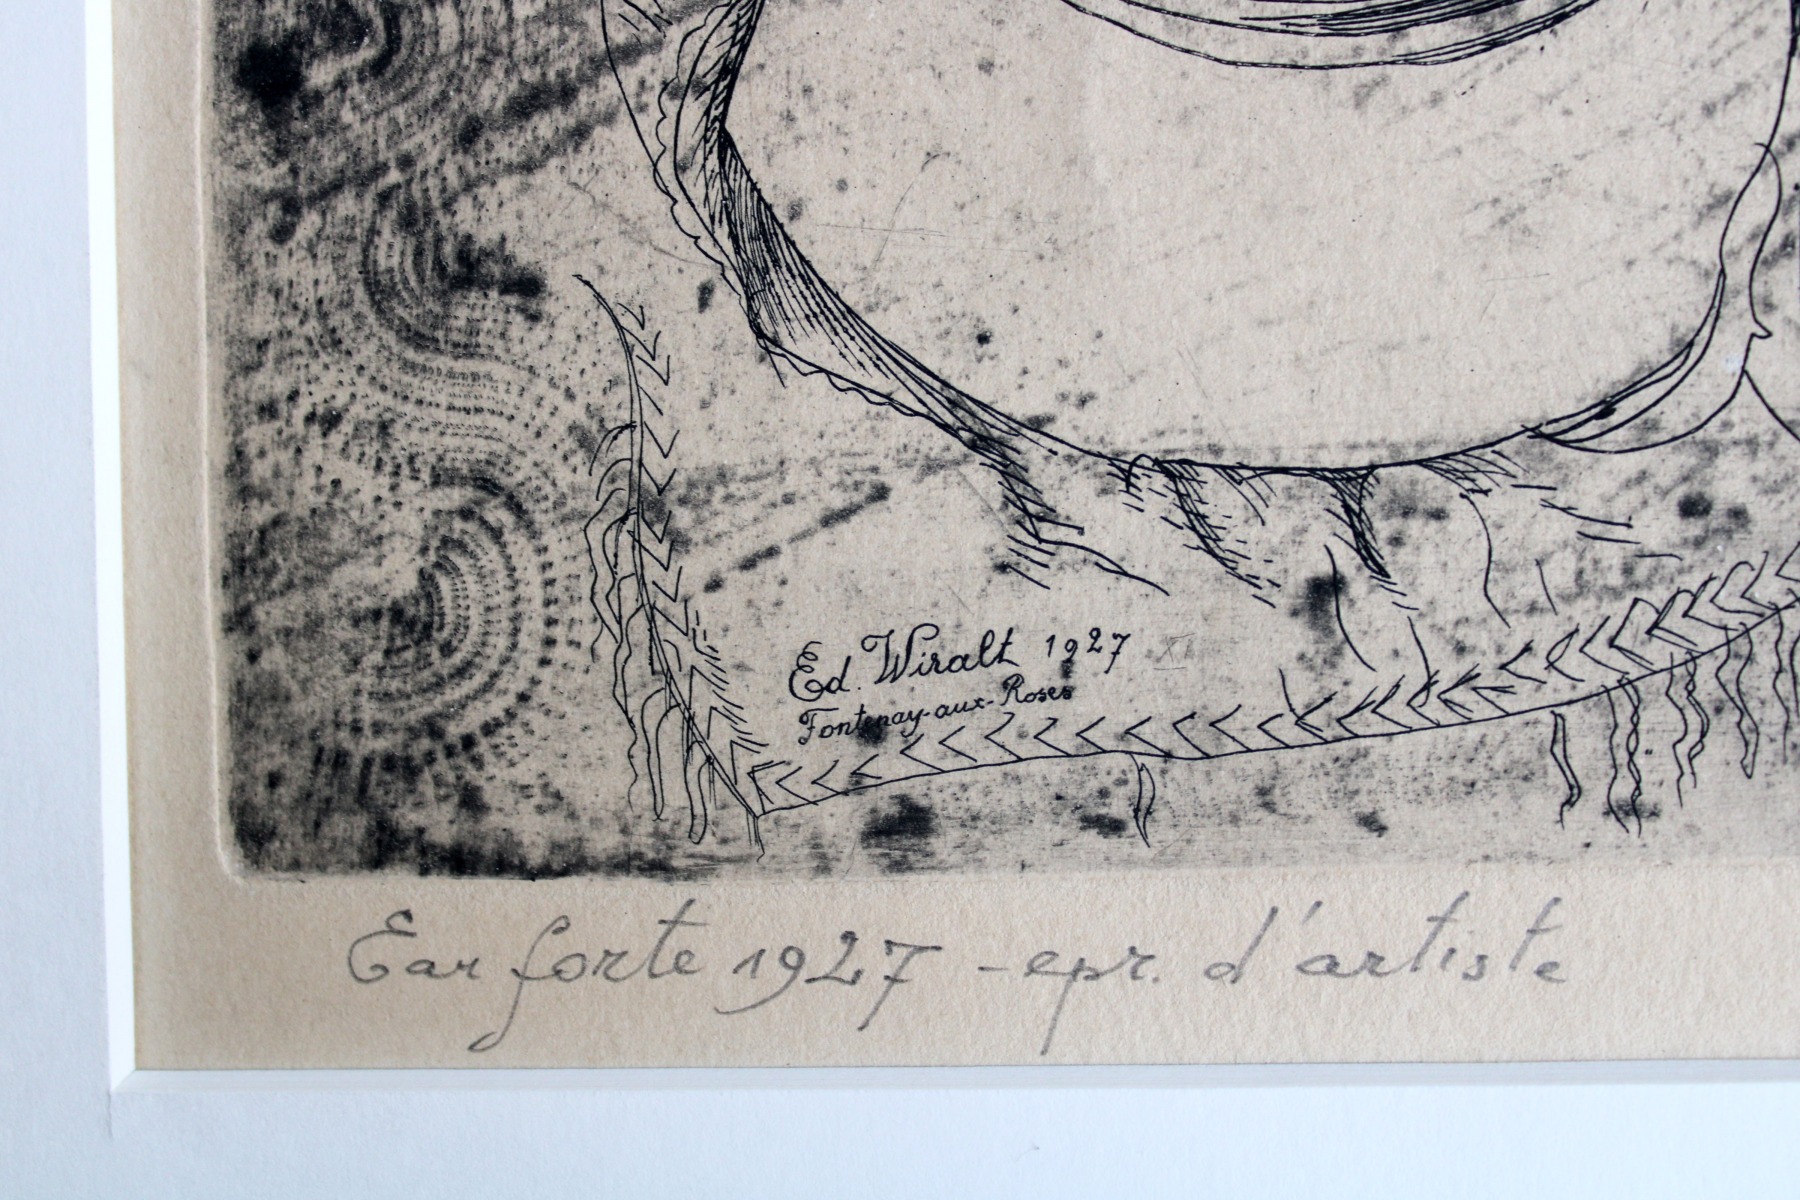 Ed. Wiralt 1927 XI
Fontenay-aux-Roses
Eau forte 1927 - epr. d'artiste